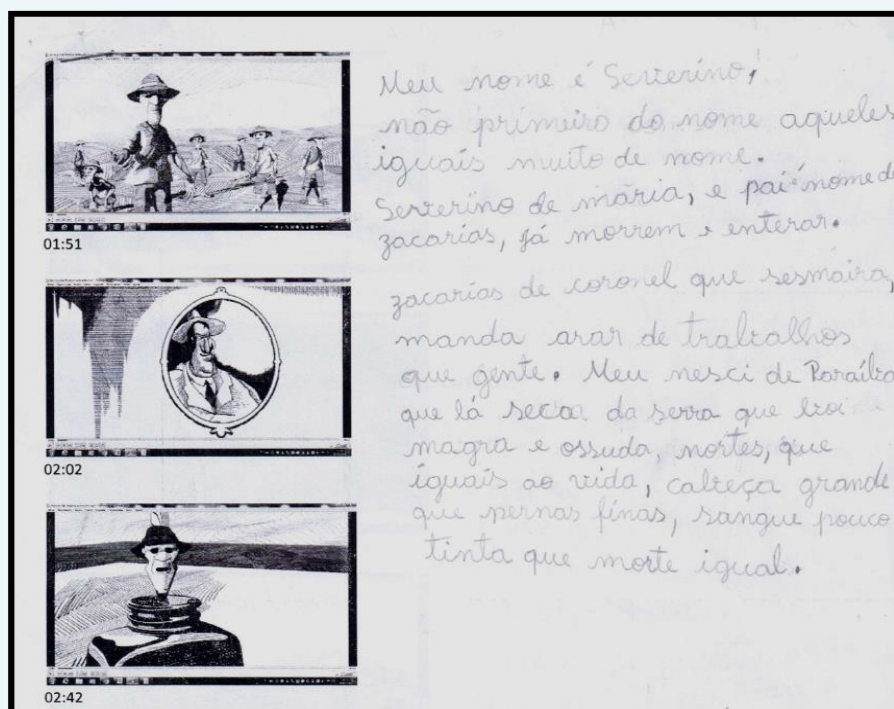 01:51
02:02
02:42
Meu nome é Serterino,
não primeiro do nome aqueles
iguais muito de nome.
Serterino de mária, e pai nome de
zacarias, já morrem e enterar.
zacarias de coronel que sesmaira,
manda arar de traltalhos
que gente. Meu nesci de Paraílta
que lá da serra que
magra e ossuda, mortes, que
iguais ao vida, calteça grande
que pernas finas, sangue pouco
tinta que morte igual.